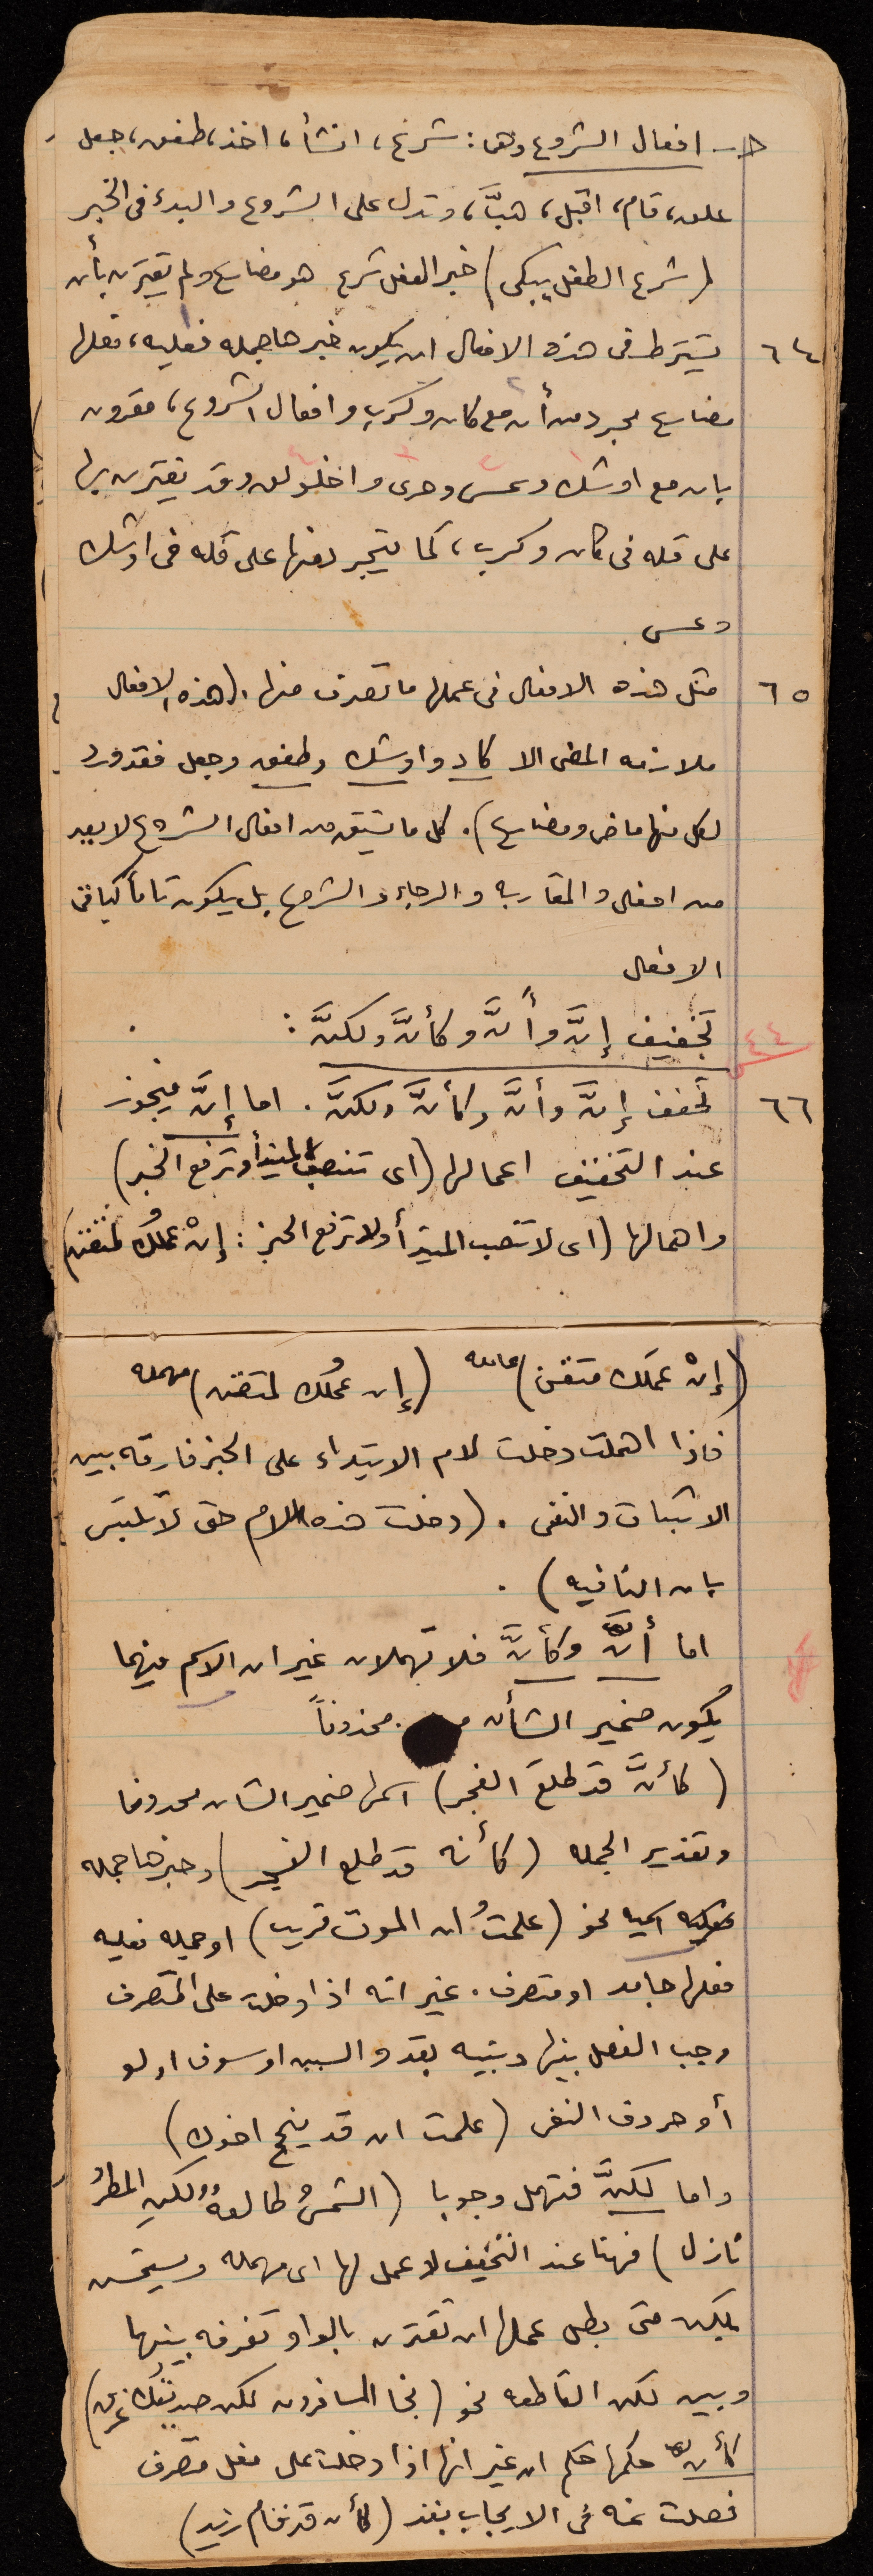 حـ- افعال الشروع وهى: شرع، انشأ، اخذ، طفق، جعل
علق، قام، اقبل، هبَّ، وتدل على الشروع والبدء فى الخبر
(شرع الطفل يبكى) خبر الفعل شرع هو مضارع ولم يقترن بأن
٦٤ يشترط فى هذه الافعال ان يكون خبرها جمله فعليه، فعلها
مضارع مجرد من أن مع كاد وكرب وافعال الشروع، مقرون
بان مع اوشك وعسى وحرى واخلولق وقد يقترن بها
على قله فى كاد وكرب، كما يتجرد منها على قله فى اوشك
وعسى
٦٥ مثل هذه الافعال فى عملها ما تصرف منها. (هذه الافعال
ملازمه المضى الا كاد واوشك وطفق وجعل فقد ورد
لكل منها ماض ومضارع). كل ما يشتق من افعال الشروع لا يعد
من افعال والمقاربه والرجاء والشروع بل يكون تاماً كباقى
الافعال
٤٤ تخفيف إنَّ وأنَّ وكأنَّ ولكنَّ:
٦٦ تخفف إنَّ وأنَّ وكأنَّ ولكنَّ. اما إنَّ فيجوز
عند التخفيف اعمالها (اى تنصب المبتدأ وترفع الخبر)
واهمالها (اى لا تنصب المبتدأ ولا ترفع الخبر: إنْ عملُك لمتقن
(إنْ عملَك متقن) عامله (إن عملُك لمتقن) مهمله
فاذا اهملت دخلت لام الابتداء على الخبر فارقه بين
الاثبات والنفى. (دخلت هذه اللام حتى لا تلتبس
بان النافيه).
اما أنَّ وكأنَّ فلا تهملان غير ان الاسم فيهما
يكون ضمير الشأن محذوفاً
(كأنَّ قد طلعَ الفجر) اسمها ضمير الشان محذوفا
وتقدير الجمله (كأنه قد طلع الفجر) وخبرها جمله
اسميه نحو (علمتُ ان الموت قريب) او جمله فعليه
فعلها جامد او متصرف. غير انه اذا دخلت على المتصرف
وجب الفصل بينها وبينه بقد والسين او سوف او لو
أو حروف النفى (علمت ان قد ينجح اخوك)
واما لكنَّ فتهمل وجوبا (الشمسُ طالعهٌ ولكنِ المطرُ
نازل) فهنا عند التخفيف لا عمل لها اى مهمله ويستحسن
بلكن متى بطل عملها ان تقترن بالواو تفرقه بينها
وبين لكن العاطفه نحو (نجا المسافرون لكن صديقُك غرق)
كأن حكمها حكم ان غير انها اذا دخلت على فعل متصرف
فصلت عنه فى الايجاب بقد (كأن قد قام زيد)